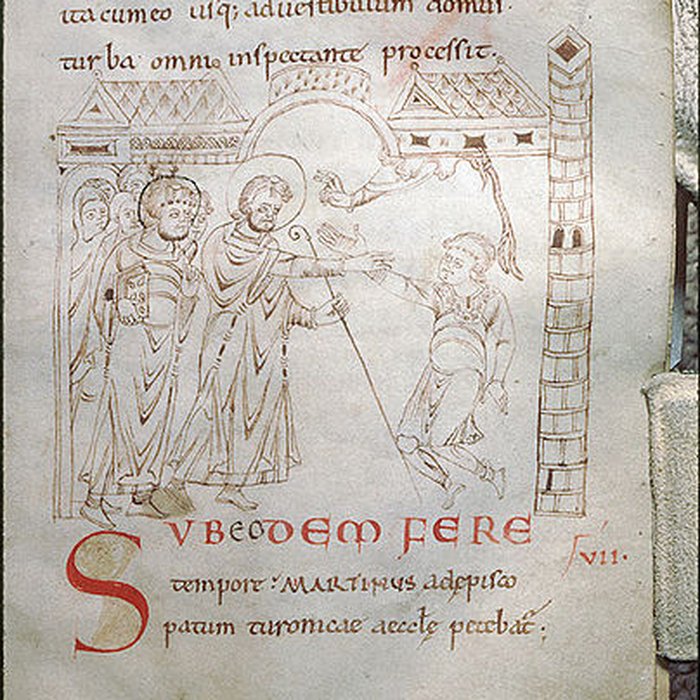 ita cum eo usq; ad vestibulum domus.
turba omni inspectante processit.
SUBEODEM FERE
VII.
tempore MARTINUS ad ępisco
patum turonicae aecclę petebat̃;